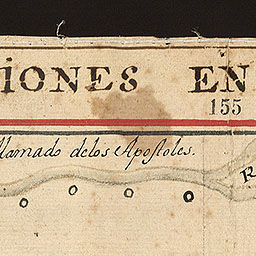 IONES EN
155
llamado delos Apostoles.
R